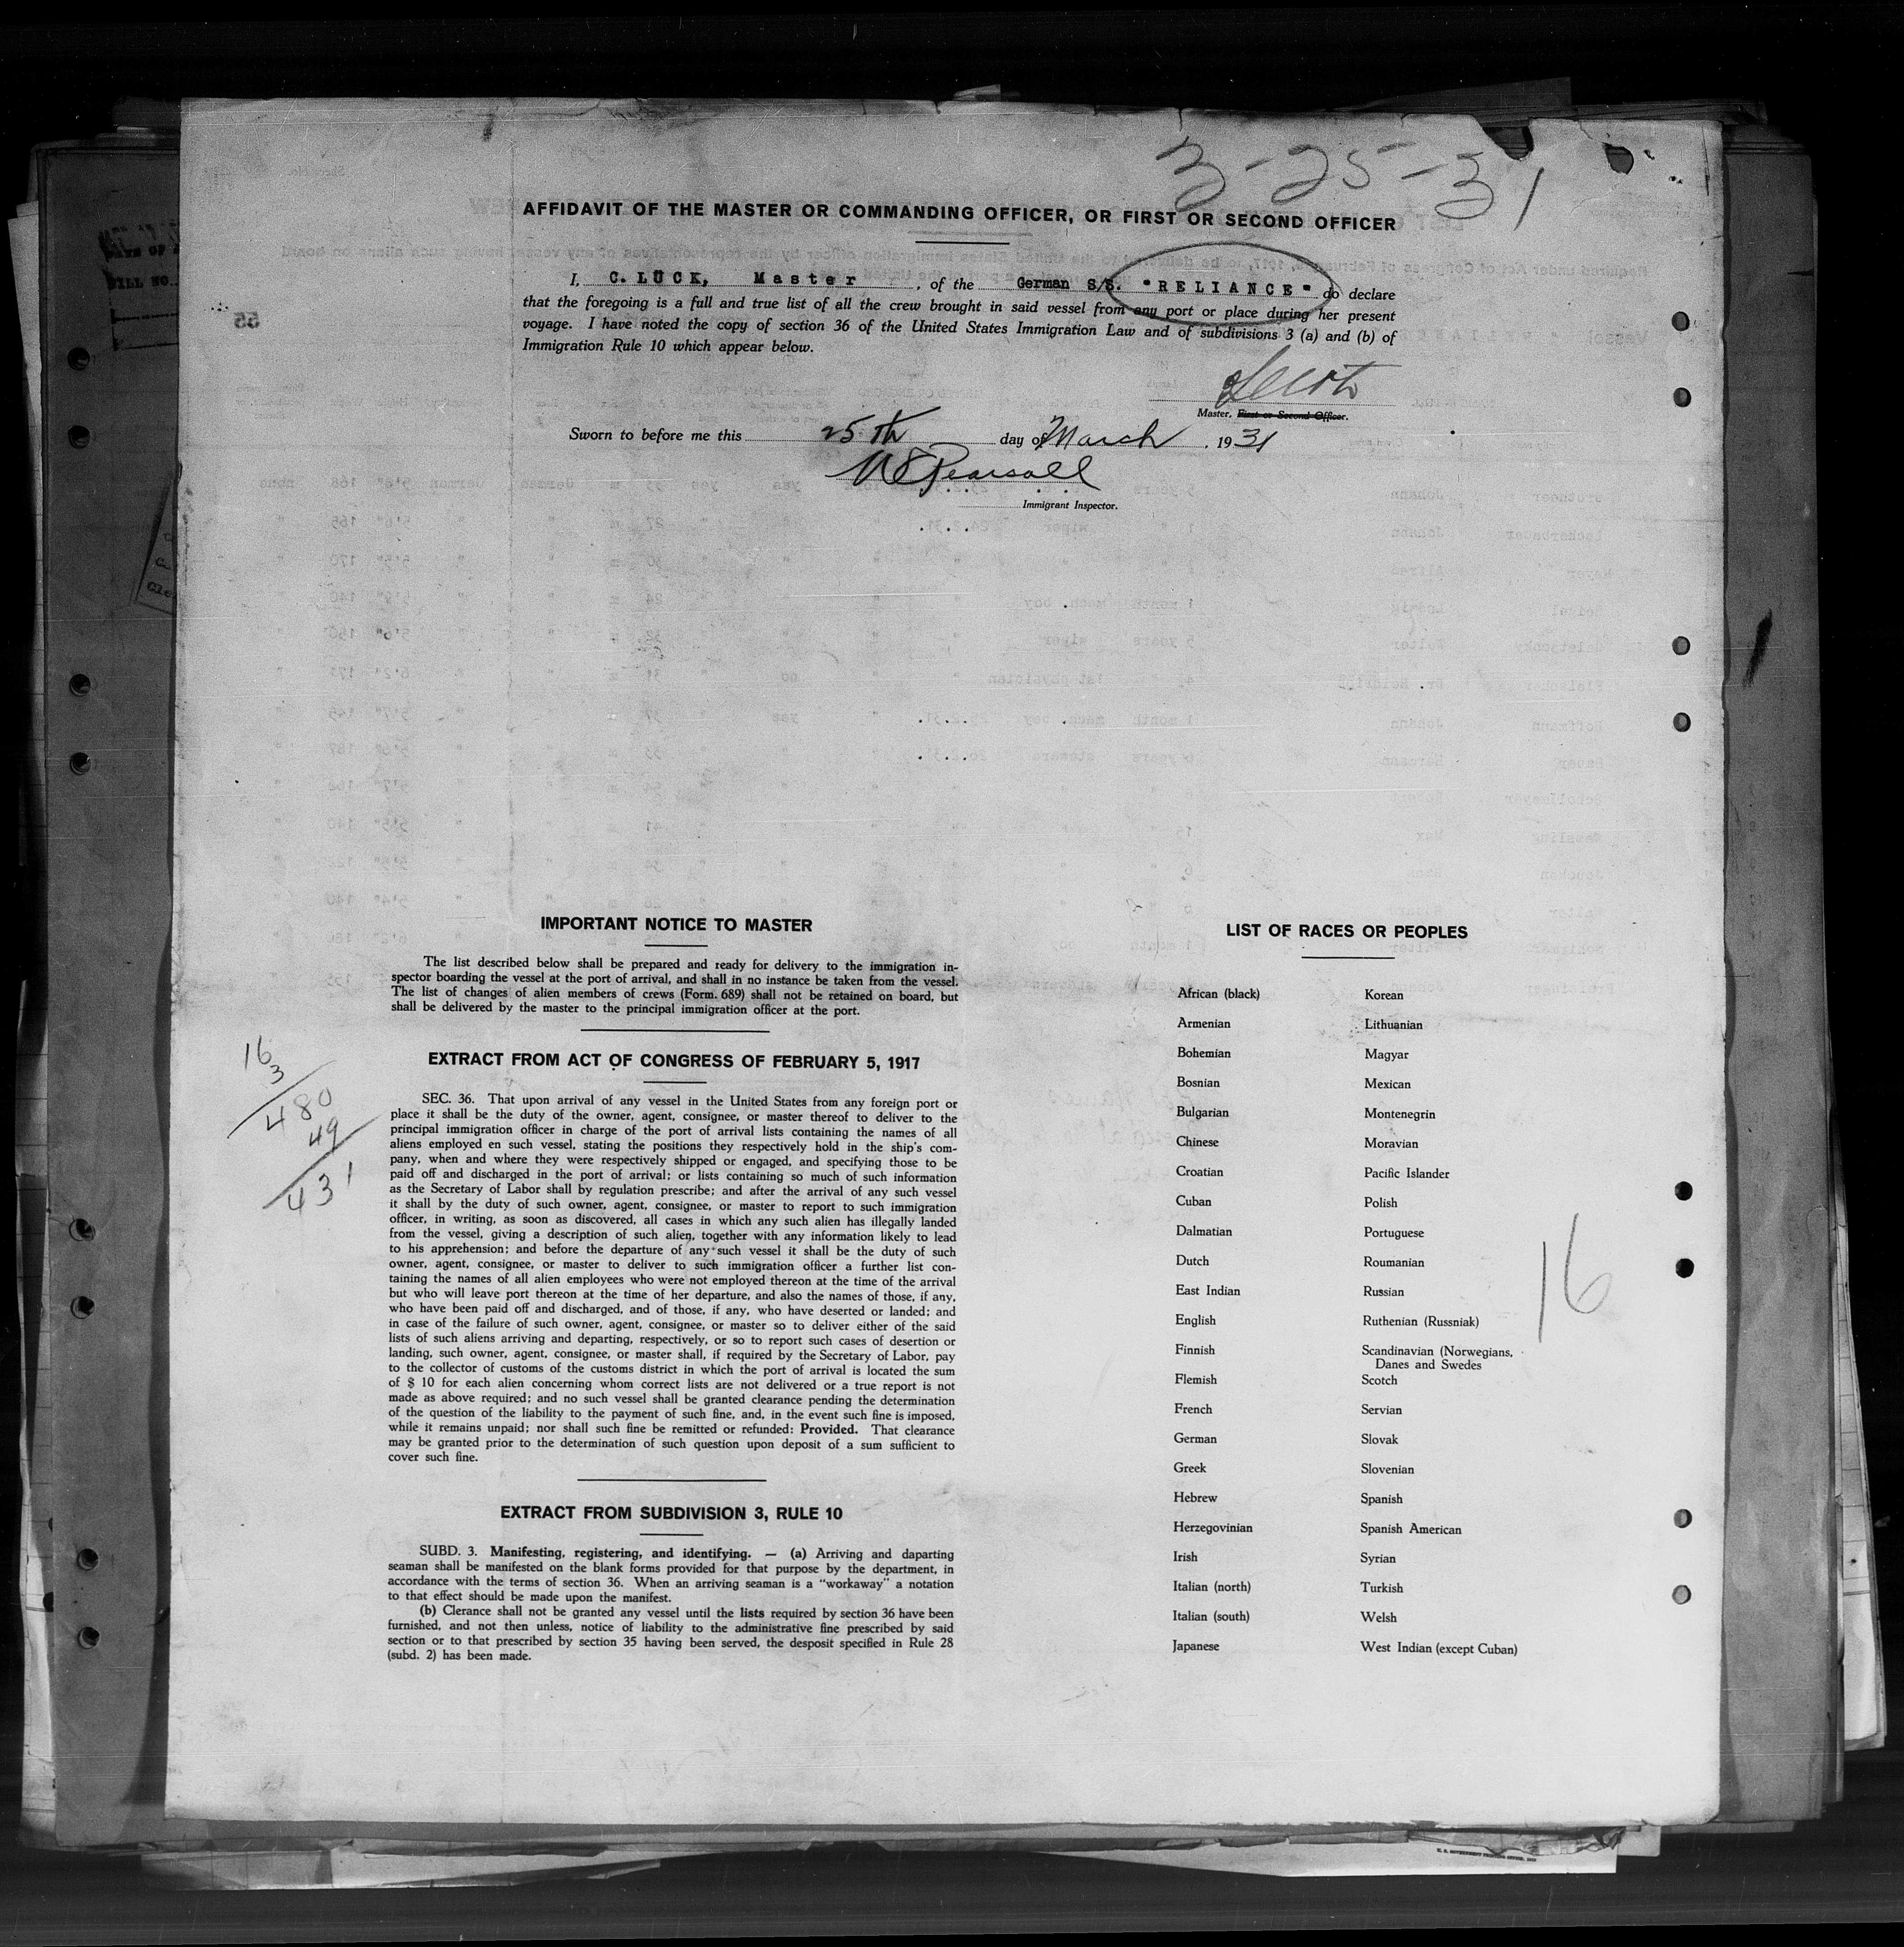 3-25-31
AFFIDAVIT OF THE MASTER OR COMMANDING OFFICER, OR FIRST OR SECOND OFFICER
I, C. LÜCK, Master, of the German S/S. "RELIANCE" do declare
that the foregoing is a full and true list of all the crew brought in said vessel from any port or place during her present
voyage. I have noted the copy of section 36 of the United States Immigration Law and of subdivisions 3 (a) and (b) of
Immigration Rule 10 which appear below.
Master, First or Second Officer.
Sworn to before me this 25th day of March, 1931
Pearsall
Immigrant Inspector.
IMPORTANT NOTICE TO MASTER
The list described below shall be prepared and ready for delivery to the immigration in-
spector boarding the vessel at the port of arrival, and shall in no instance be taken from the vessel.
The list of changes of alien members of crews (Form. 689) shall not be retained on board, but
shall be delivered by the master to the principal immigration officer at the port.
16
3
480
49
431
EXTRACT FROM ACT OF CONGRESS OF FEBRUARY 5, 1917
SEC. 36. That upon arrival of any vessel in the United States from any foreign port or
place it shall be the duty of the owner, agent, consignee, or master thereof to deliver to the
principal immigration officer in charge of the port of arrival lists containing the names of all
aliens employed en such vessel, stating the positions they respectively hold in the ship's com-
pany, when and where they were respectively shipped or engaged, and specifying those to be
paid off and discharged in the port of arrival; or lists containing so much of such information
as the Secretary of Labor shall by regulation prescribe; and after the arrival of any such vessel
it shall by the duty of such owner, agent, consignee, or master to report to such immigration
officer, in writing, as soon as discovered, all cases in which any such alien has illegally landed
from the vessel, giving a description of such alien, together with any information likely to lead
to his apprehension; and before the departure of any such vessel it shall be the duty of such
owner, agent, consignee, or master to deliver to such immigration officer a further list con-
taining the names of all alien employees who were not employed thereon at the time of the arrival
but who will leave port thereon at the time of her departure, and also the names of those, if any,
who have been paid off and discharged, and of those, if any, who have deserted or landed; and
in case of the failure of such owner, agent, consignee, or master so to deliver either of the said
lists of such aliens arriving and departing, respectively, or so to report such cases of desertion or
landing, such owner, agent, consignee, or master shall, if required by the Secretary of Labor, pay
to the collector of customs of the customs district in which the port of arrival is located the sum
of $ 10 for each alien concerning whom correct lists are not delivered or a true report is not
made as above required; and no such vessel shall be granted clearance pending the determination
of the question of the liability to the payment of such fine, and, in the event such fine is imposed,
while it remains unpaid; nor shall such fine be remitted or refunded: Provided. That clearance
may be granted prior to the determination of such question upon deposit of a sum sufficient to
cover such fine.
EXTRACT FROM SUBDIVISION 3, RULE 10
SUBD. 3. Manifesting, registering, and identifying. — (a) Arriving and daparting
seaman shall be manifested on the blank forms provided for that purpose by the department, in
accordance with the terms of section 36. When an arriving seaman is a "workaway" a notation
to that effect should be made upon the manifest.
(b) Clerance shall not be granted any vessel until the lists required by section 36 have been
furnished, and not then unless, notice of liability to the administrative fine prescribed by said
section or to that prescribed by section 35 having been served, the desposit specified in Rule 28
(subd. 2) has been made.
LIST OF RACES OR PEOPLES
African (black) Korean
Armenian Lithuanian
Bohemian Magyar
Bosnian Mexican
Bulgarian Montenegrin
Chinese Moravian
Croatian Pacific Islander
Cuban Polish
Dalmatian Portuguese
Dutch Roumanian
East Indian Russian
English Ruthenian (Russniak)
Finnish Scandinavian (Norwegians,
Danes and Swedes
Flemish Scotch
French Servian
German Slovak
Greek Slovenian
Hebrew Spanish
Herzegovinian Spanish American
Irish Syrian
Italian (north) Turkish
Italian (south) Welsh
Japanese West Indian (except Cuban)
16